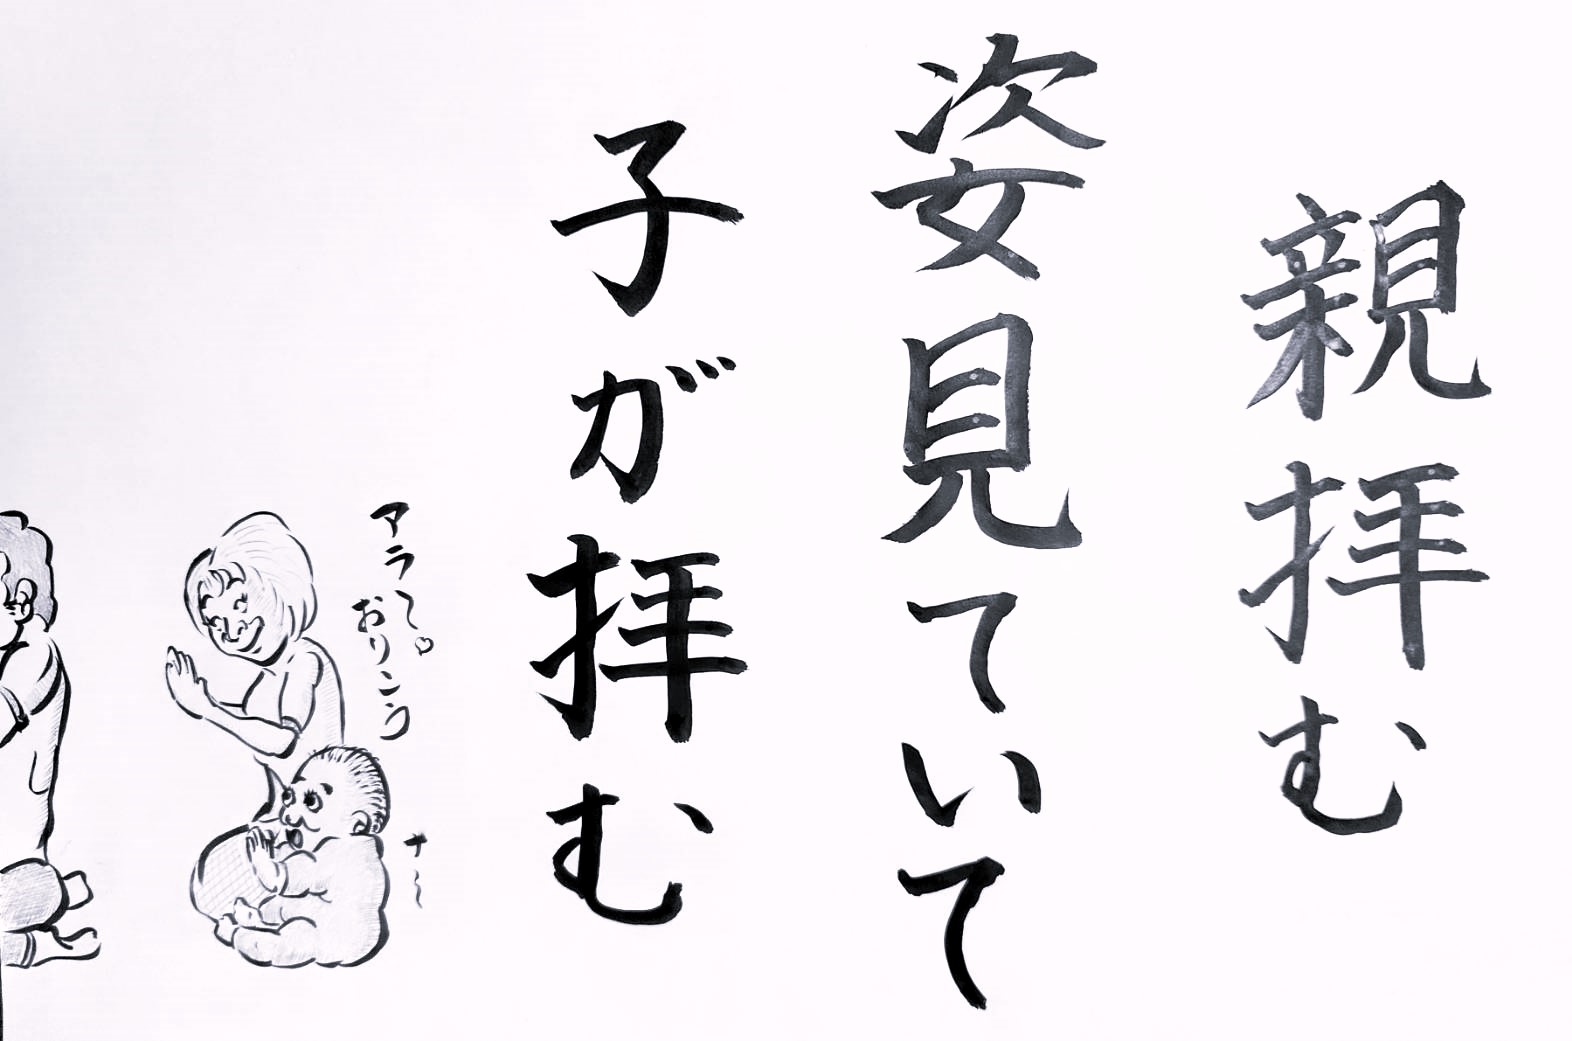 親拝む
姿見ていて
子が拝む
アラ〜。
おりこう
ナ〜